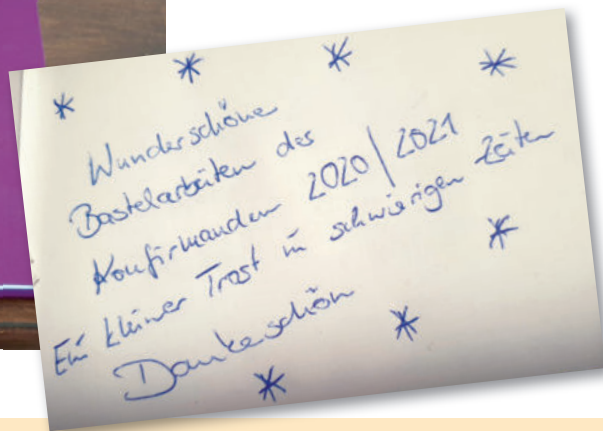 Wunderschöne
Bastelarbeiten des
Konfirmanden 2020/2021
Ein kleiner Trost in schwierigen Zeiten
Dankeschön